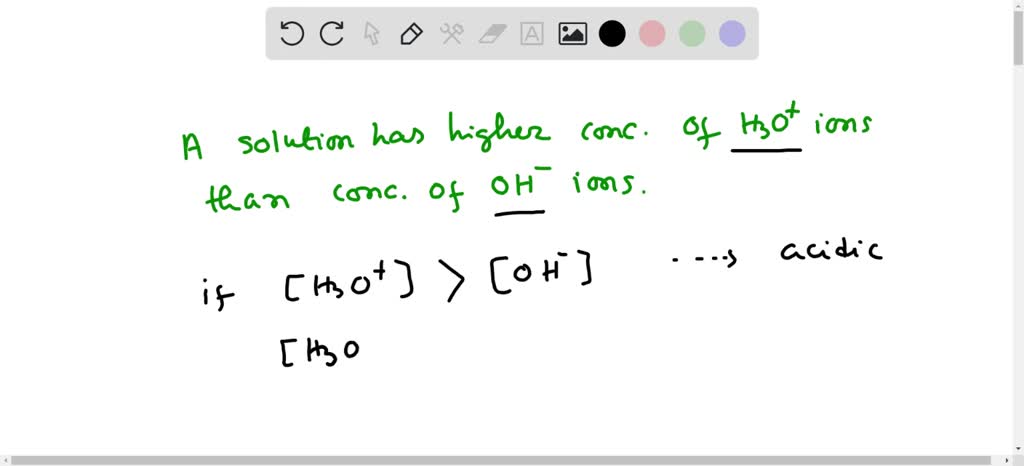 A solution has higher conc. of H₃O⁺ ions
than conc. of OH⁻ ions.
if [H₃O⁺] > [OH⁻] ----> acidic
[H₃O